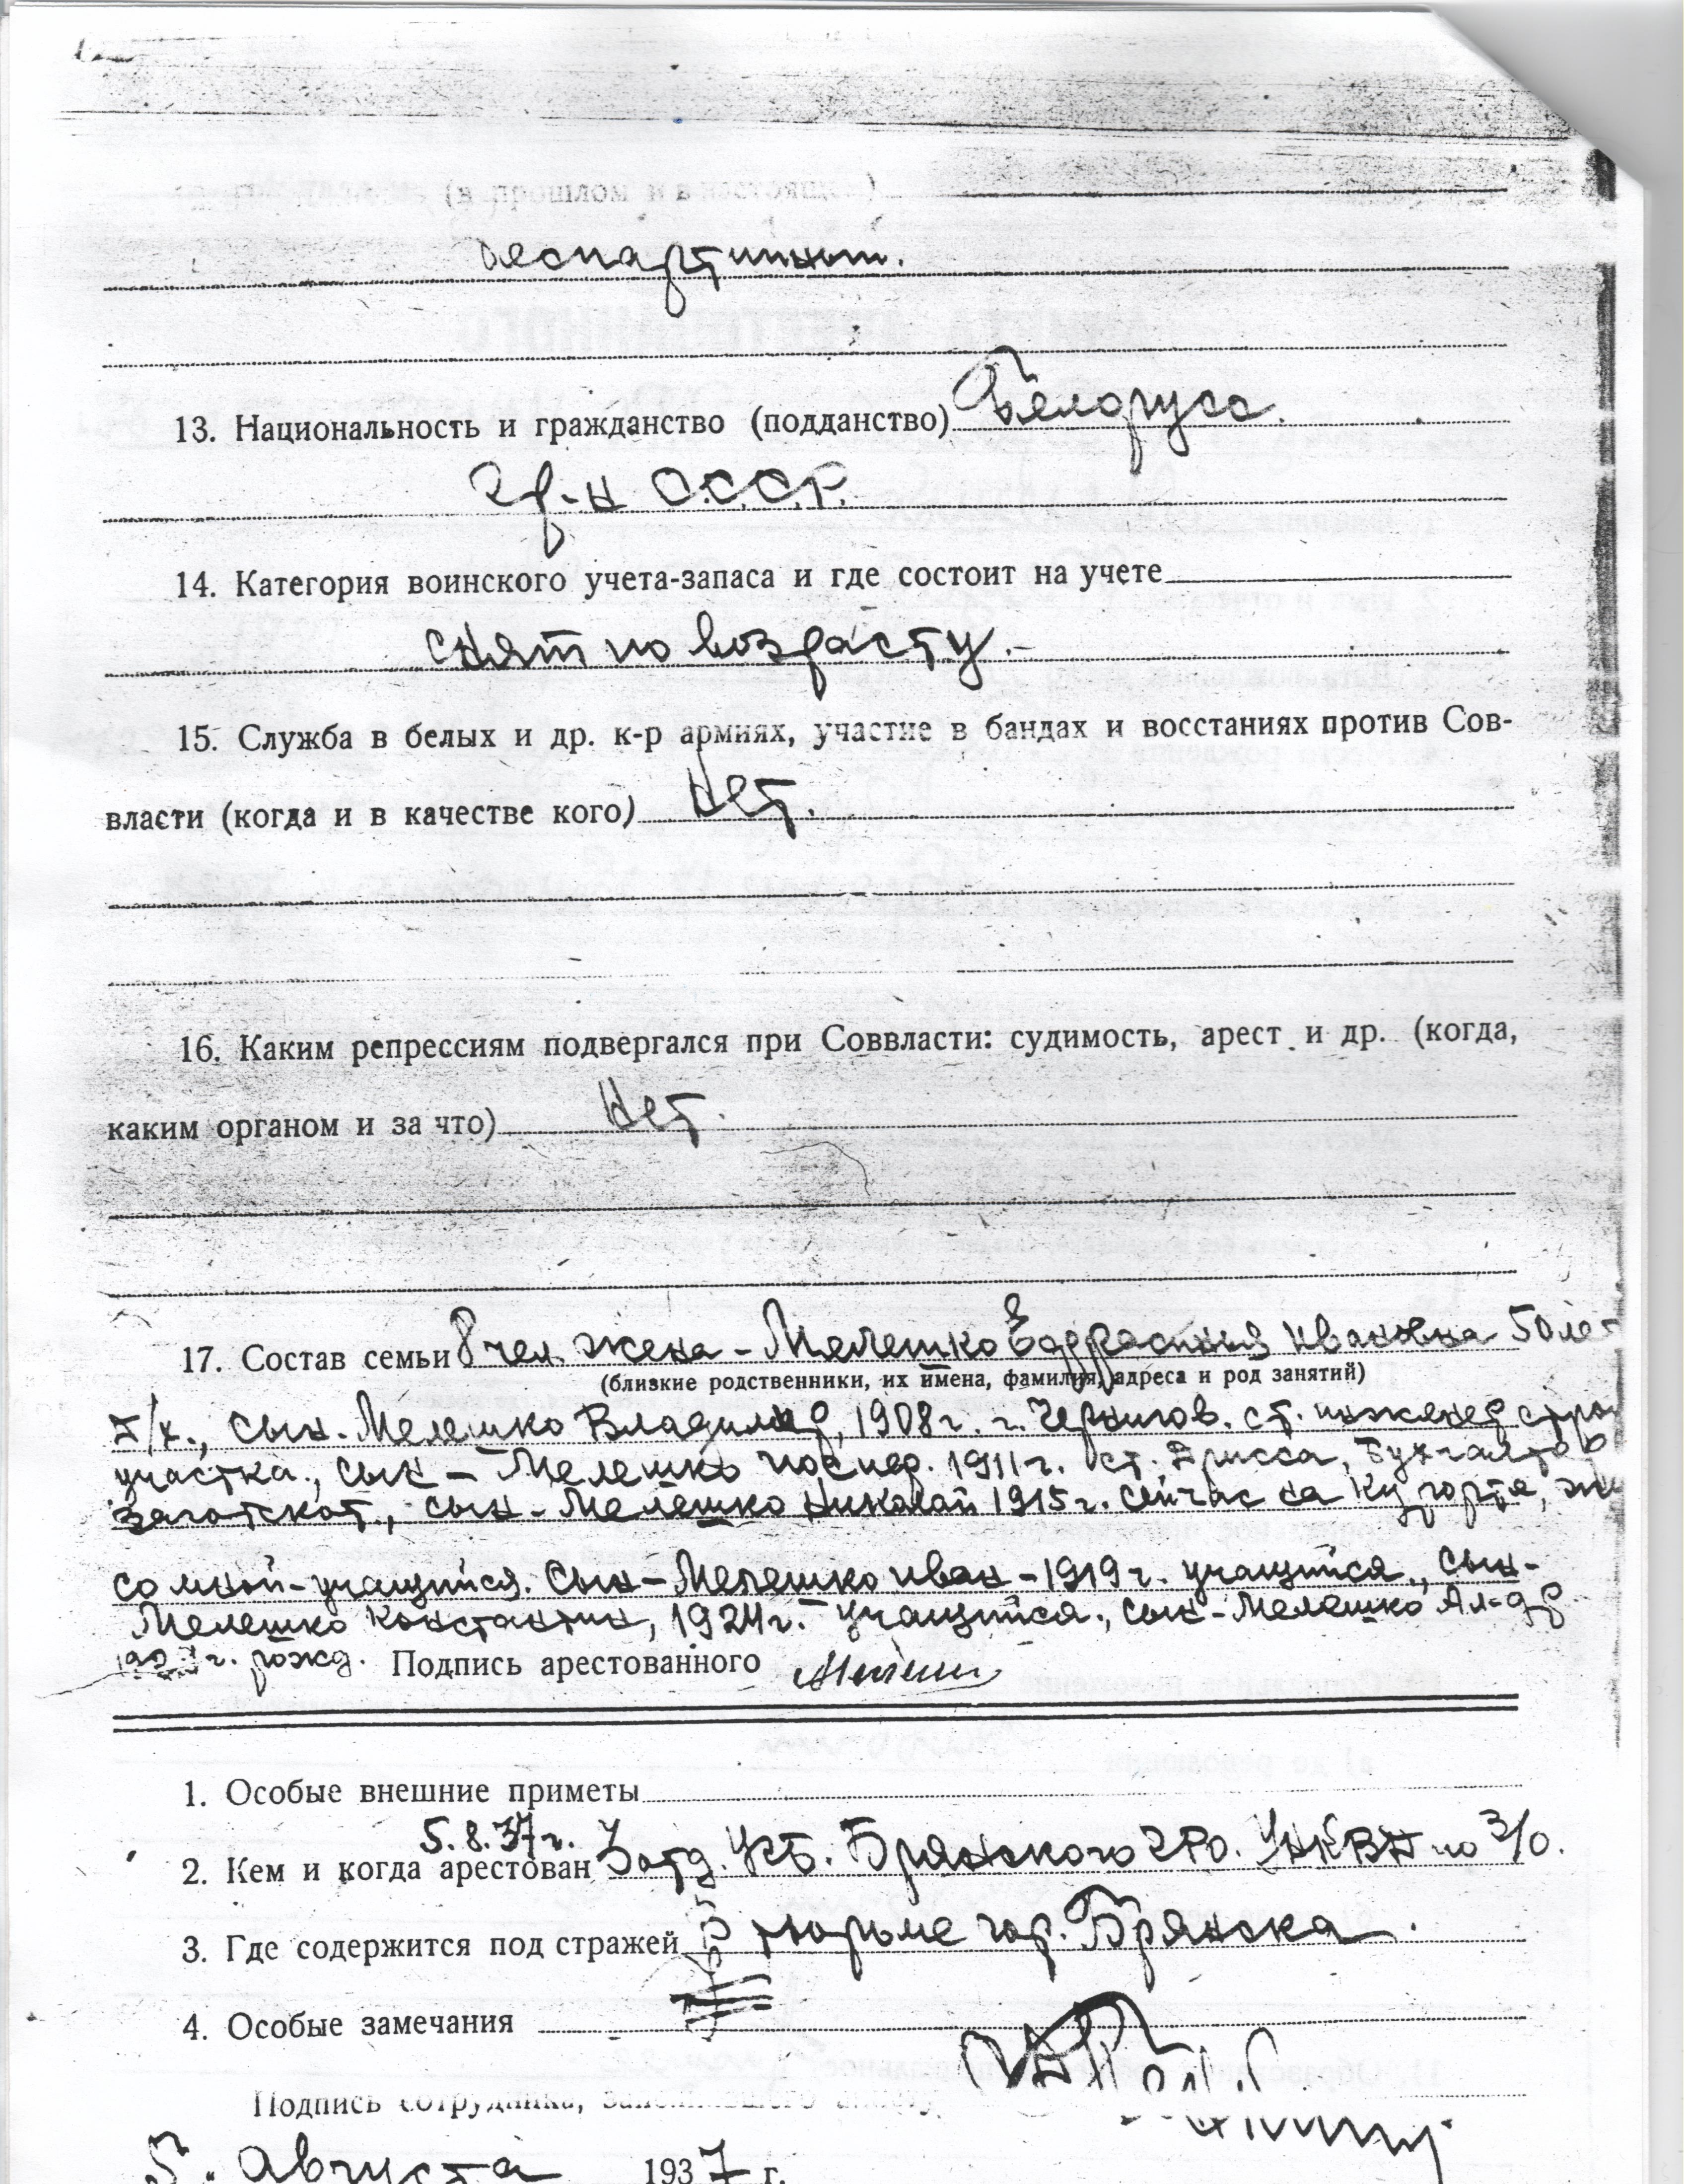 (в прошлом и в настоящ )
беспартийный.
13. Национальность и гражданство (подданство) Белорусс.
гр-н С.С.С.Р.
14. Категория воинского учета-запаса и где состоит на учете
снят по возрасту.-
15. Служба в белых и др. к-р армиях, участие в бандах и восстаниях против Сов-
власти (когда и в качестве кого) Нет.
16. Каким репрессиям подвергался при Соввласти: судимость, арест и др. (когда,
каким органом и за что) Нет.
17. Состав семьи 8 чел. жена - Мелешко Ивановна 50 лет
(близкие родственники, их имена, фамилия, адреса и род занятий)
д/х., сын. Мелешко Владимир, 1908 г. г. Чернигов. ст. инженер
участка., сын - Мелешко 1911 г. ст. Дрисса, Бухгалтер
Заготскот., сын - Мелешко Николай 1915 г. сейчас на курорте,
со мной - учащийся. Сын - Мелешко Иван - 1919 г. учащийся., сын-
Мелешко Константин, 1924 г. - учащийся., сын - Мелешко Ал-др
г. рожд. Подпись арестованного
1. Особые внешние приметы
5.8.37 г.
2. Кем и когда арестован 3 отд. УГБ. Брянского ГРО. УНКВД по З/О.
3. Где содержится под стражей В тюрьме гор. Брянска.
4. Особые замечания
Подпись сотрудника, заполнившего анкету
5. Августа 1937 г.